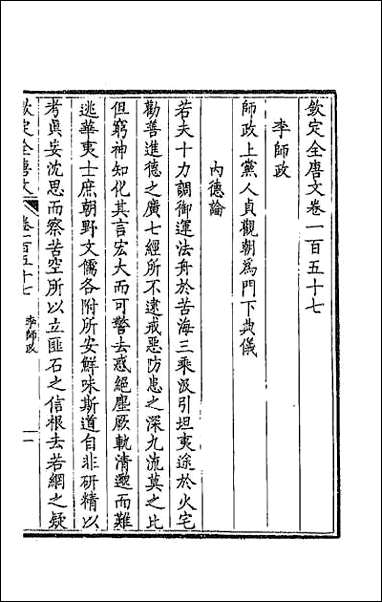 欽定全唐文卷一百五十七
李師政
師政上黨人貞觀朝爲門下典儀
內德論
若夫十力調御運法舟於苦海三乘汲引坦夷途於火宅
勸善進德之廣七經所不逮戒惡防患之深九流莫之比
但窮神知化其言宏大而可警去惑絕塵厥軌清邈而難
逃華夷士庶朝野文儒各附所安鮮味斯道自非研精以
考眞妄沈思而察苦空所以立匪石之信根去若網之疑
欽定全唐文
卷一百五十七
李師政
一